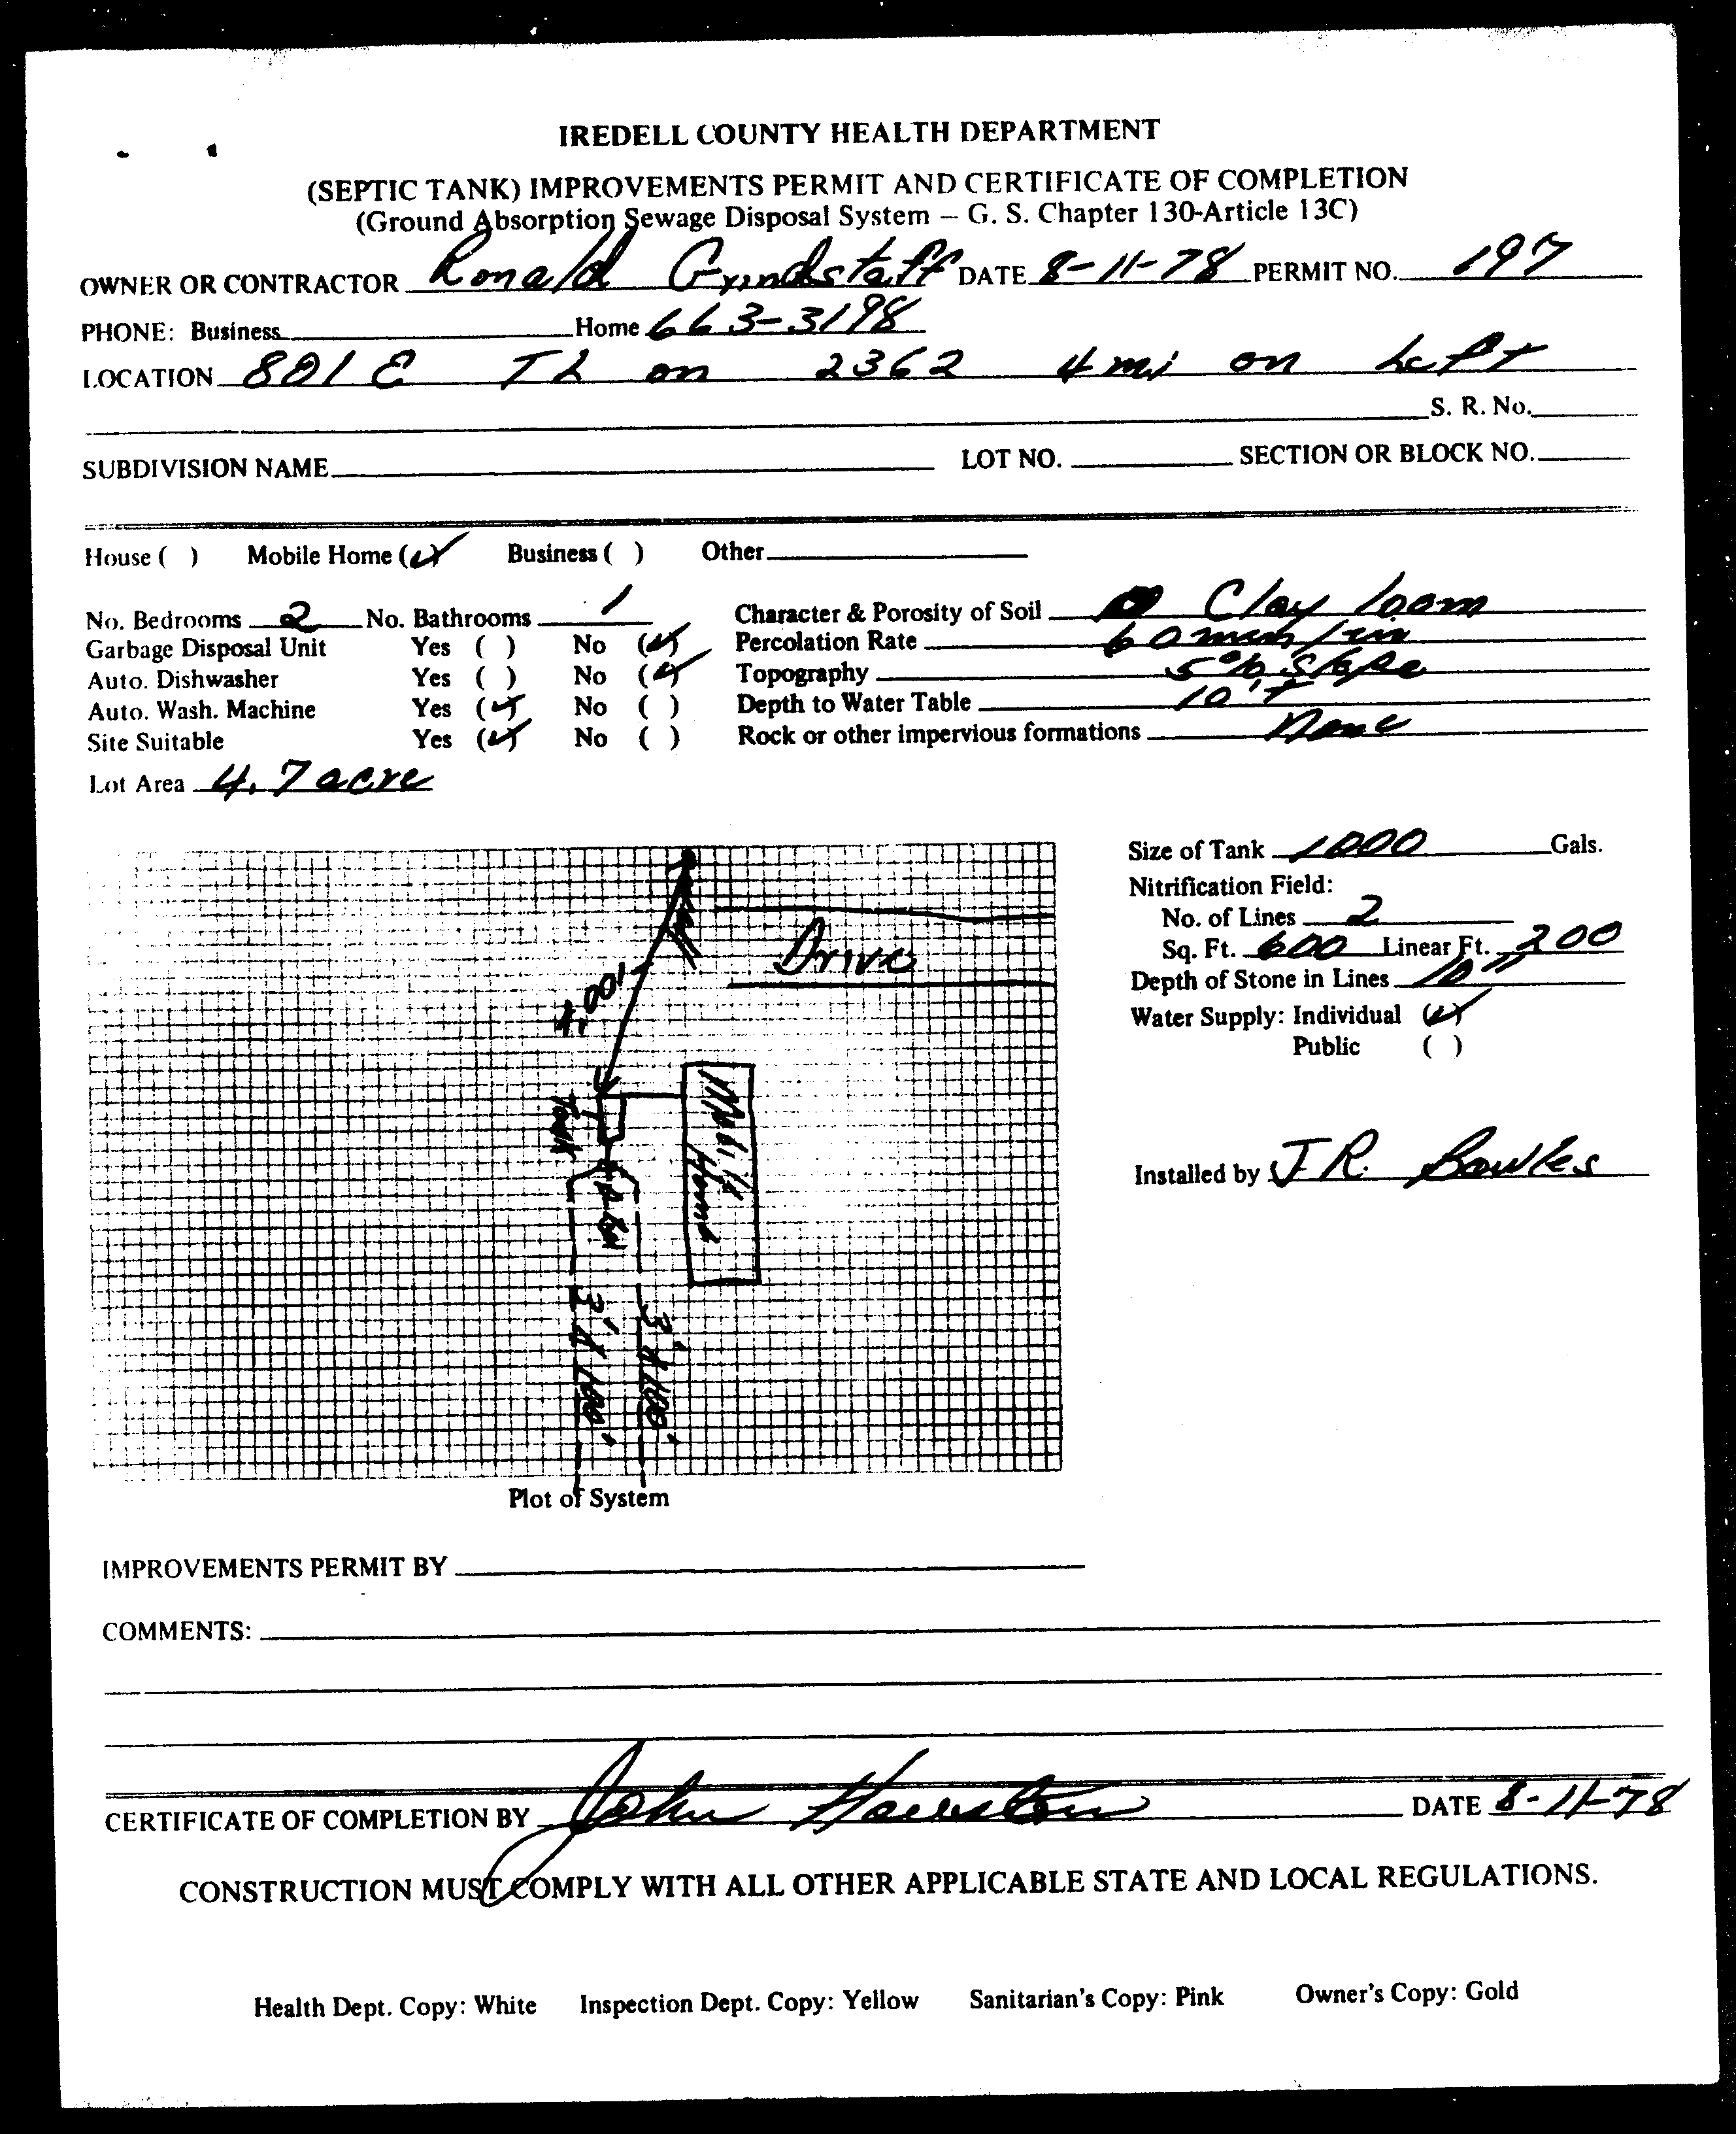 IREDELL COUNTY HEALTH DEPARTMENT
(SEPTIC TANK) IMPROVEMENTS PERMIT AND CERTIFICATE OF COMPLETION
(Ground Absorption Sewage Disposal System – G. S. Chapter 130-Article 13C)
OWNER OR CONTRACTOR Ronald Grindstaff DATE 8-11-78 PERMIT NO. 197
PHONE: Business Home 663-3198
LOCATION 801 E TL on 2362 4 mi on Left
S. R. No.
SUBDIVISION NAME LOT NO. SECTION OR BLOCK NO.
House ( ) Mobile Home (✓) Business ( ) Other
No. Bedrooms 2 No. Bathrooms 1 Character & Porosity of Soil Clay loam
Garbage Disposal Unit Yes ( ) No (✓) Percolation Rate 60 min/in
Auto. Dishwasher Yes ( ) No (✓) Topography 5% slope
Auto. Wash. Machine Yes (✓) No ( ) Depth to Water Table 10'+
Site Suitable Yes (✓) No ( ) Rock or other impervious formations None
Lot Area 4.7 acre
Size of Tank 1000 Gals.
Nitrification Field:
No. of Lines 2
Sq. Ft. 600 Linear Ft. 200
Depth of Stone in Lines 10"
Water Supply: Individual (✓)
Public ( )
Installed by J.R. Bowles
Well
Drive
100'+
Tank
Mobile Home
D-Box
3' x 100'
3' x 100'
Plot of System
IMPROVEMENTS PERMIT BY
COMMENTS:
CERTIFICATE OF COMPLETION BY John Houston DATE 8-11-78
CONSTRUCTION MUST COMPLY WITH ALL OTHER APPLICABLE STATE AND LOCAL REGULATIONS.
Health Dept. Copy: White Inspection Dept. Copy: Yellow Sanitarian's Copy: Pink Owner's Copy: Gold